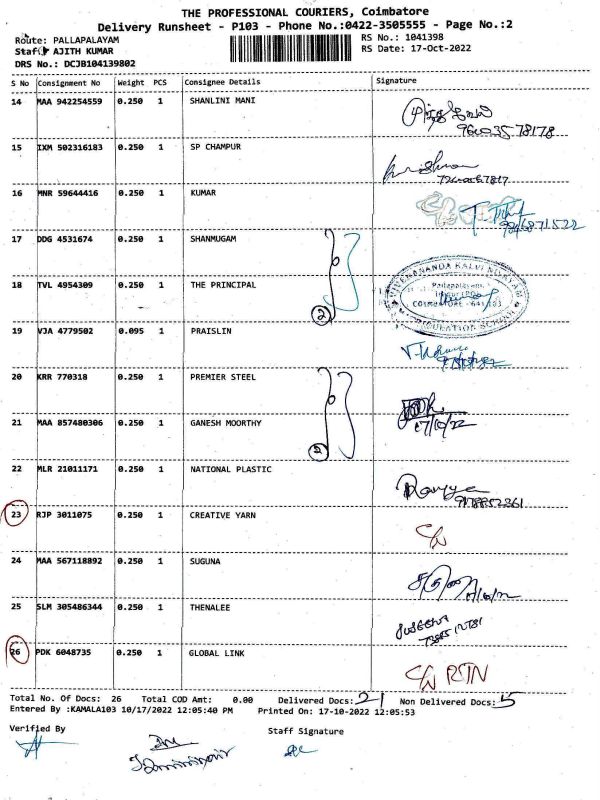 THE PROFESSIONAL COURIERS, Coimbatore
Delivery Runsheet - P103 - Phone No.:0422-3505555 - Page No.:2
Route: PALLAPALAYAM RS No.: 1041398
Staff AJITH KUMAR RS Date: 17-Oct-2022
DRS No.: DCJB104139802
S No Consignment No Weight PCS Consignee Details Signature
14 MAA 942254559 0.250 1 SHANLINI MANI
15 IXM 502316183 0.250 1 SP CHAMPUR
16 MNR 59644416 0.250 1 KUMAR
17 DDG 4531674 0.250 1 SHANMUGAM
18 TVL 4954309 0.250 1 THE PRINCIPAL
2
19 VJA 4779502 0.095 1 PRAISLIN
20 KRR 770318 0.250 1 PREMIER STEEL
21 MAA 857480306 0.250 1 GANESH MOORTHY
17/10/22
2
22 MLR 21011171 0.250 1 NATIONAL PLASTIC
Ramya
23 RJP 3011075 0.250 1 CREATIVE YARN
C/N
24 MAA 567118892 0.250 1 SUGUNA
25 SLM 305486344 0.250 1 THENALEE
26 PDK 6048735 0.250 1 GLOBAL LINK
C/N RTN
Total No. Of Docs: 26 Total COD Amt: 0.00 Delivered Docs: 21 Non Delivered Docs: 5
Entered By :KAMALA103 10/17/2022 12:05:40 PM Printed On: 17-10-2022 12:05:53
Verified By Staff Signature